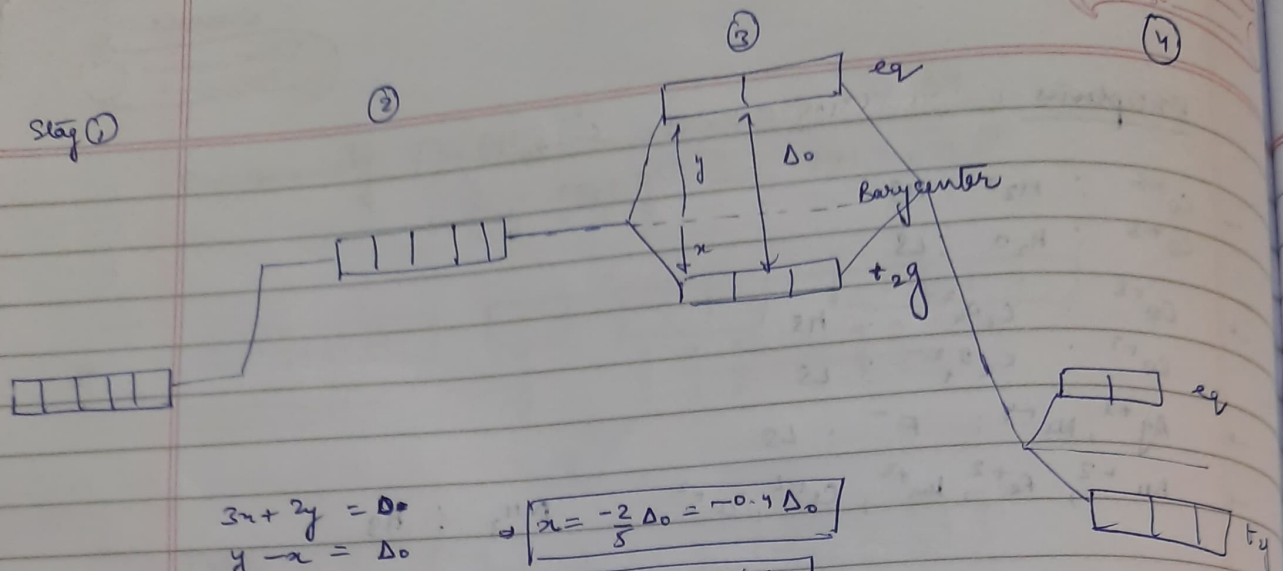 Stag ①
②
③
④
eg
y
Δo
Barycenter
x
t2g
eg
3x + 2y = Δo
y - x = Δo
⇒ x = -2/5 Δo = -0.4 Δo